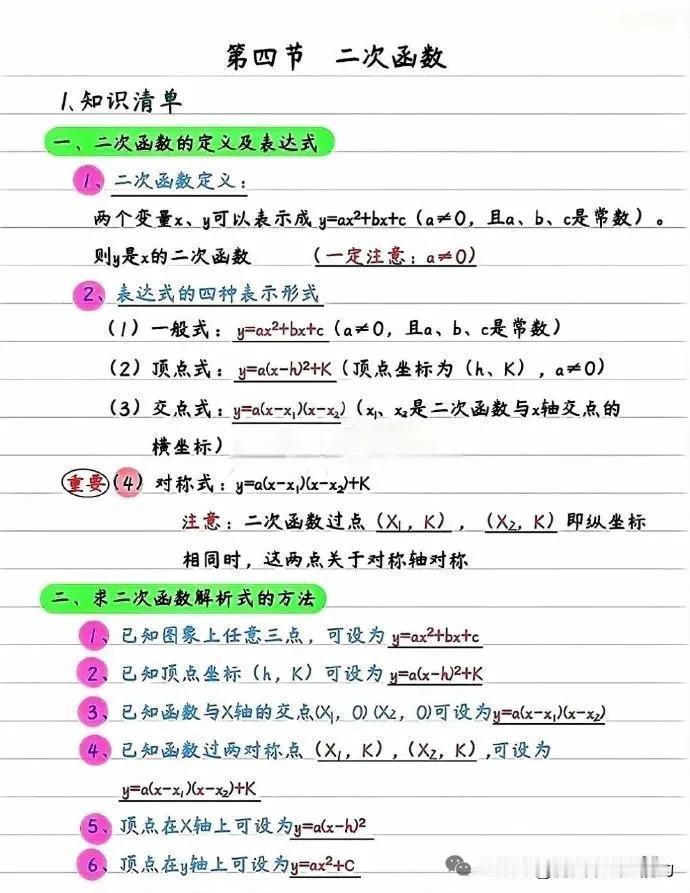 第四节 二次函数
1、知识清单
一、二次函数的定义及表达式
1、二次函数定义：
两个变量x、y可以表示成 y=ax²+bx+c（a≠0，且a、b、c是常数）。
则y是x的二次函数 （一定注意：a≠0）
2、表达式的四种表示形式
（1）一般式：y=ax²+bx+c（a≠0，且a、b、c是常数）
（2）顶点式：y=a(x-h)²+K（顶点坐标为（h、K），a≠0）
（3）交点式：y=a(x-x₁)(x-x₂)（x₁、x₂是二次函数与x轴交点的
横坐标）
重要（4）对称式：y=a(x-x₁)(x-x₂)+K
注意：二次函数过点（X₁，K），（X₂，K）即纵坐标
相同时，这两点关于对称轴对称
二、求二次函数解析式的方法
1、已知图象上任意三点，可设为 y=ax²+bx+c
2、已知顶点坐标（h，K）可设为 y=a(x-h)²+K
3、已知函数与X轴的交点(X₁，0)(X₂，0)可设为y=a(x-x₁)(x-x₂)
4、已知函数过两对称点（X₁，K），（X₂，K），可设为
y=a(x-x₁)(x-x₂)+K
5、顶点在X轴上可设为y=a(x-h)²
6、顶点在y轴上可设为y=ax²+C